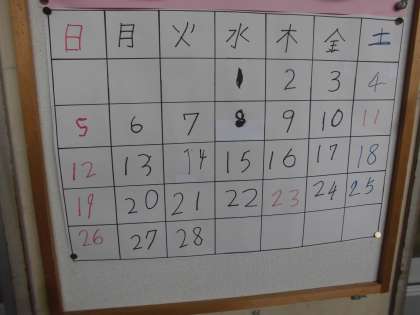 日 月 火 水 木 金 土
1 2 3 4
5 6 7 8 9 10 11
12 13 14 15 16 17 18
19 20 21 22 23 24 25
26 27 28